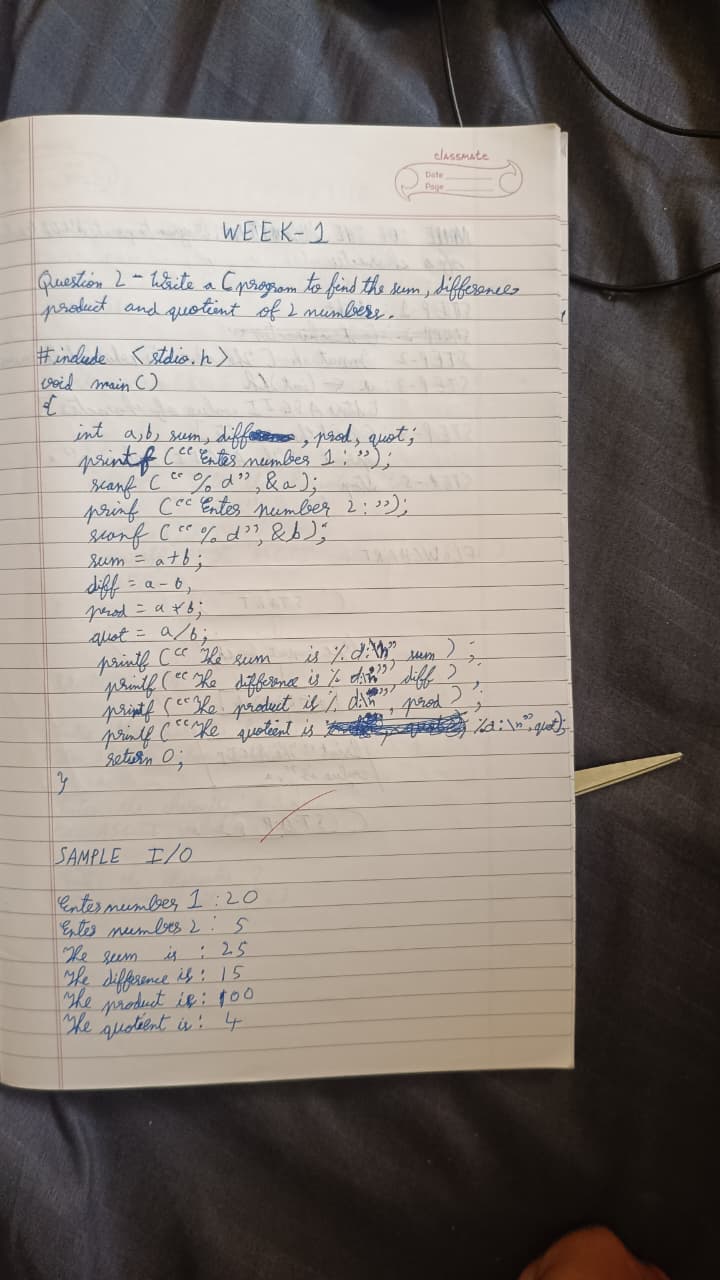 classmate
Date
Page
WEEK-1
Question 2 - Write a C program to find the sum, difference,
product and quotient of 2 numbers.
#include <stdio.h>
void main()
{
int a,b, sum, diff, prod, quot;
printf ("Enter number 1 : ");
scanf ("%d", &a);
prinf ("Enter number 2 : ");
scanf ("%d", &b);
sum = a+b;
diff = a-b,
prod = a*b;
quot = a/b;
printf ("The sum is %d:\n" sum);
printf ("The difference is %d:\n", diff);
printf ("The product is %d:\n", prod);
printf ("The quotient is %d:\n", quot);
return 0;
}
SAMPLE I/O
Enter number 1 : 20
Enter number 2 : 5
The sum is : 25
The difference is : 15
The product is : 100
The quotient is : 4